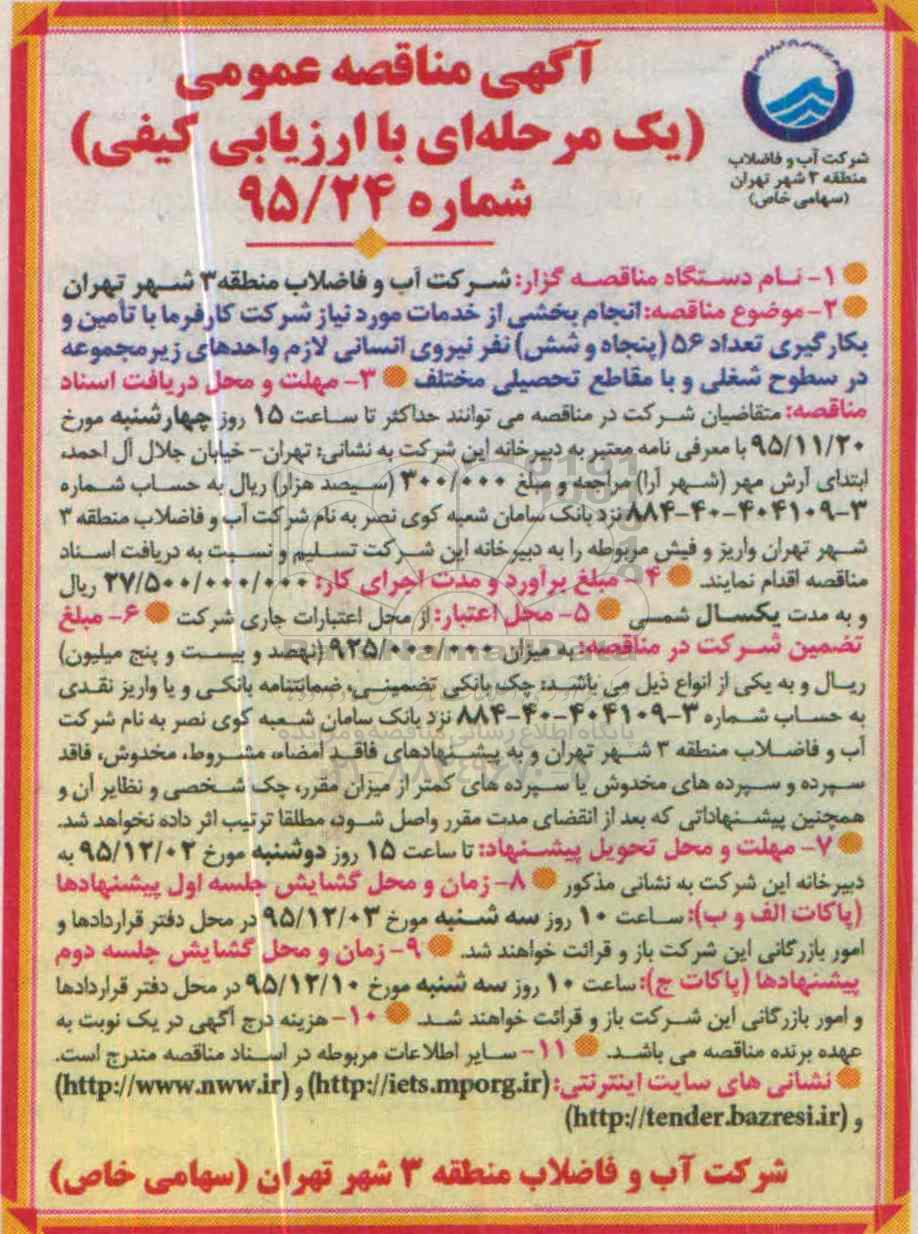 شرکت آب و فاضلاب
منطقه ۳ شهر تهران
(سهامی خاص)
آگهی مناقصه عمومی
(یک مرحله‌ای با ارزیابی کیفی)
شماره ۹۵/۲۴
۱- نـام دسـتگاه مناقصـه گزار: شـرکت آب و فاضلاب منطقه۳ شـهر تهران
۲-موضوع مناقصه: انجام بخشی از خدمات مورد نیاز شرکت کارفرما با تأمین و
بکارگیری تعداد ۵۶ (پنجاه و شش) نفر نیروی انسانی لازم واحدهای زیرمجموعه
در سطوح شغلی و با مقاطع تحصیلی مختلف ۳- مهلت و محل دریافت اسناد
مناقصه: متقاضیان شـرکت در مناقصه می توانند حداکثر تا سـاعت ۱۵ روز چهارشنبه مورخ
۹۵/۱۱/۲۰ با معرفی نامه معتبر به دبیرخانه این شرکت به نشانی: تهران- خیابان جلال آل احمد،
ابتدای آرش مهر (شـهر آرا) مراجعه و مبلغ ۳۰۰/۰۰۰ (سـیصد هزار) ریال به حساب شـماره
۳-۴۰۴۱۰۹-۴۰-۸۸۴ نزد بانک سامان شعبه کوی نصر به نام شرکت آب و فاضلاب منطقه ۳
شـهر تهران واریز و فیش مربوطه را به دبیرخانه این شـرکت تسـلیم و نسـبت به دریافت اسـناد
مناقصه اقدام نمایند. ۴- مبلغ برآورد و مدت اجرای کار: ۲۷/۵۰۰/۰۰۰/۰۰۰ ریال
و به مدت یکسال شمسی ۵- محل اعتبار: از محل اعتبارات جاری شرکت ۶- مبلغ
تضمین شـرکت در مناقصه: به میزان ۹۲۵/۰۰۰/۰۰۰ (نهصد و بیسـت و پنج میلیون)
ریـال و به یکی از انواع ذیل می باشـد: چک بانکی تضمینـی، ضمانتنامه بانکـی و یا واریز نقـدی
به حسـاب شـماره ۳-۴۰۴۱۰۹-۴۰-۸۸۴ نزد بانک سامان شـعبه کوی نصر به نام شرکت
آب و فاضـلاب منطقه ۳ شـهر تهران و به پیشـنهادهای فاقـد امضاء، مشـروط، مخدوش، فاقد
سـپرده و سـپرده های مخدوش یا سـپرده های کمتر از میزان مقرر، چک شـخصی و نظایر آن و
همچنین پیشـنهاداتی که بعد از انقضای مدت مقرر واصل شـود، مطلقا ترتیب اثر داده نخواهد شد.
۷- مهلت و محل تحویل پیشـنهاد: تا ساعت ۱۵ روز دوشنبه مورخ ۹۵/۱۲/۰۲ به
دبیرخانه این شرکت به نشانی مذکور ۸- زمان و محل گشایش جلسه اول پیشنهادها
(پاکات الف و ب): سـاعت ۱۰ روز سه شـنبه مورخ ۹۵/۱۲/۰۳ در محل دفتر قراردادها و
امور بازرگانی این شرکت باز و قرائت خواهند شد. ۹- زمان و محل گشایش جلسه دوم
پیشنهادها (پاکات ج): ساعت ۱۰ روز سه شنبه مورخ ۹۵/۱۲/۱۰ در محل دفتر قراردادها
و امور بازرگانی این شـرکت باز و قرائت خواهند شـد. ۱۰- هزینه درج آگهی در یک نوبت به
عهده برنده مناقصه می باشـد. ۱۱- سـایر اطلاعات مربوطه در اسـناد مناقصه مندرج است.
نشانی های سایت اینترنتی: (http://iets.mporg.ir) و (http://www.nww.ir)
و (http://tender.bazresi.ir)
شرکت آب و فاضلاب منطقه ۳ شهر تهران (سهامی خاص)